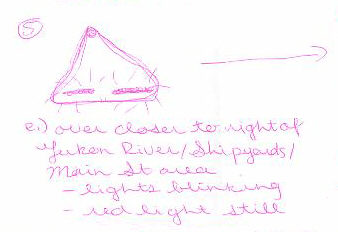 5
e.) over closer to right of
Yukon River/Shipyards/
Main St area
- lights blinking
- red light still